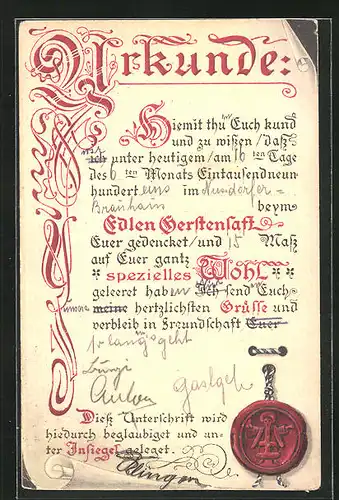 Urkunde:
Hiemit thu Euch kund
und zu wißen / daß
ich unter heutigem / am 16 ten Tage
des 6 ten Monats Eintausendneun-
hundert eins im Nussdorfer-
Bräuhaus beym
Edlen Gerstensaft
Euer gedencket / und 15 Maß
auf Euer gantz
spezielles Wohl
geleeret haben Ich send Euch
unsere meine hertzlichsten Grüsse und
verbleib in Freundschaft Euer
so lang's geht
Anton
Dieß Unterschrift wird
hiedurch beglaubiget und un-
ter Insiegel geleget.